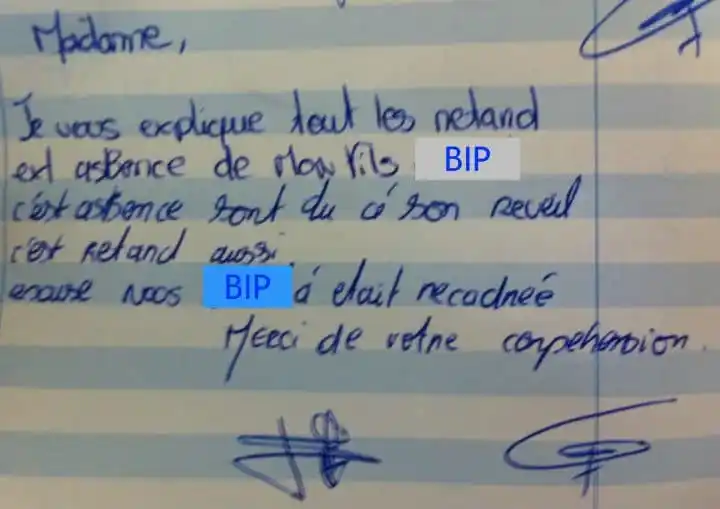 Madame,
Je vous explique tout les retard
ext asBence de mon fils BIP
c'est asbence sont du à son reveil
c'est retard aussi.
nous BIP à était recadreé
Merci de votre conpehension.